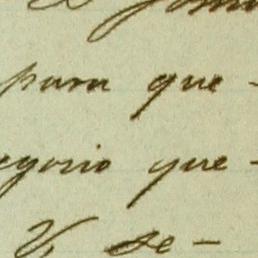 para que-
egorio que-
V. se-